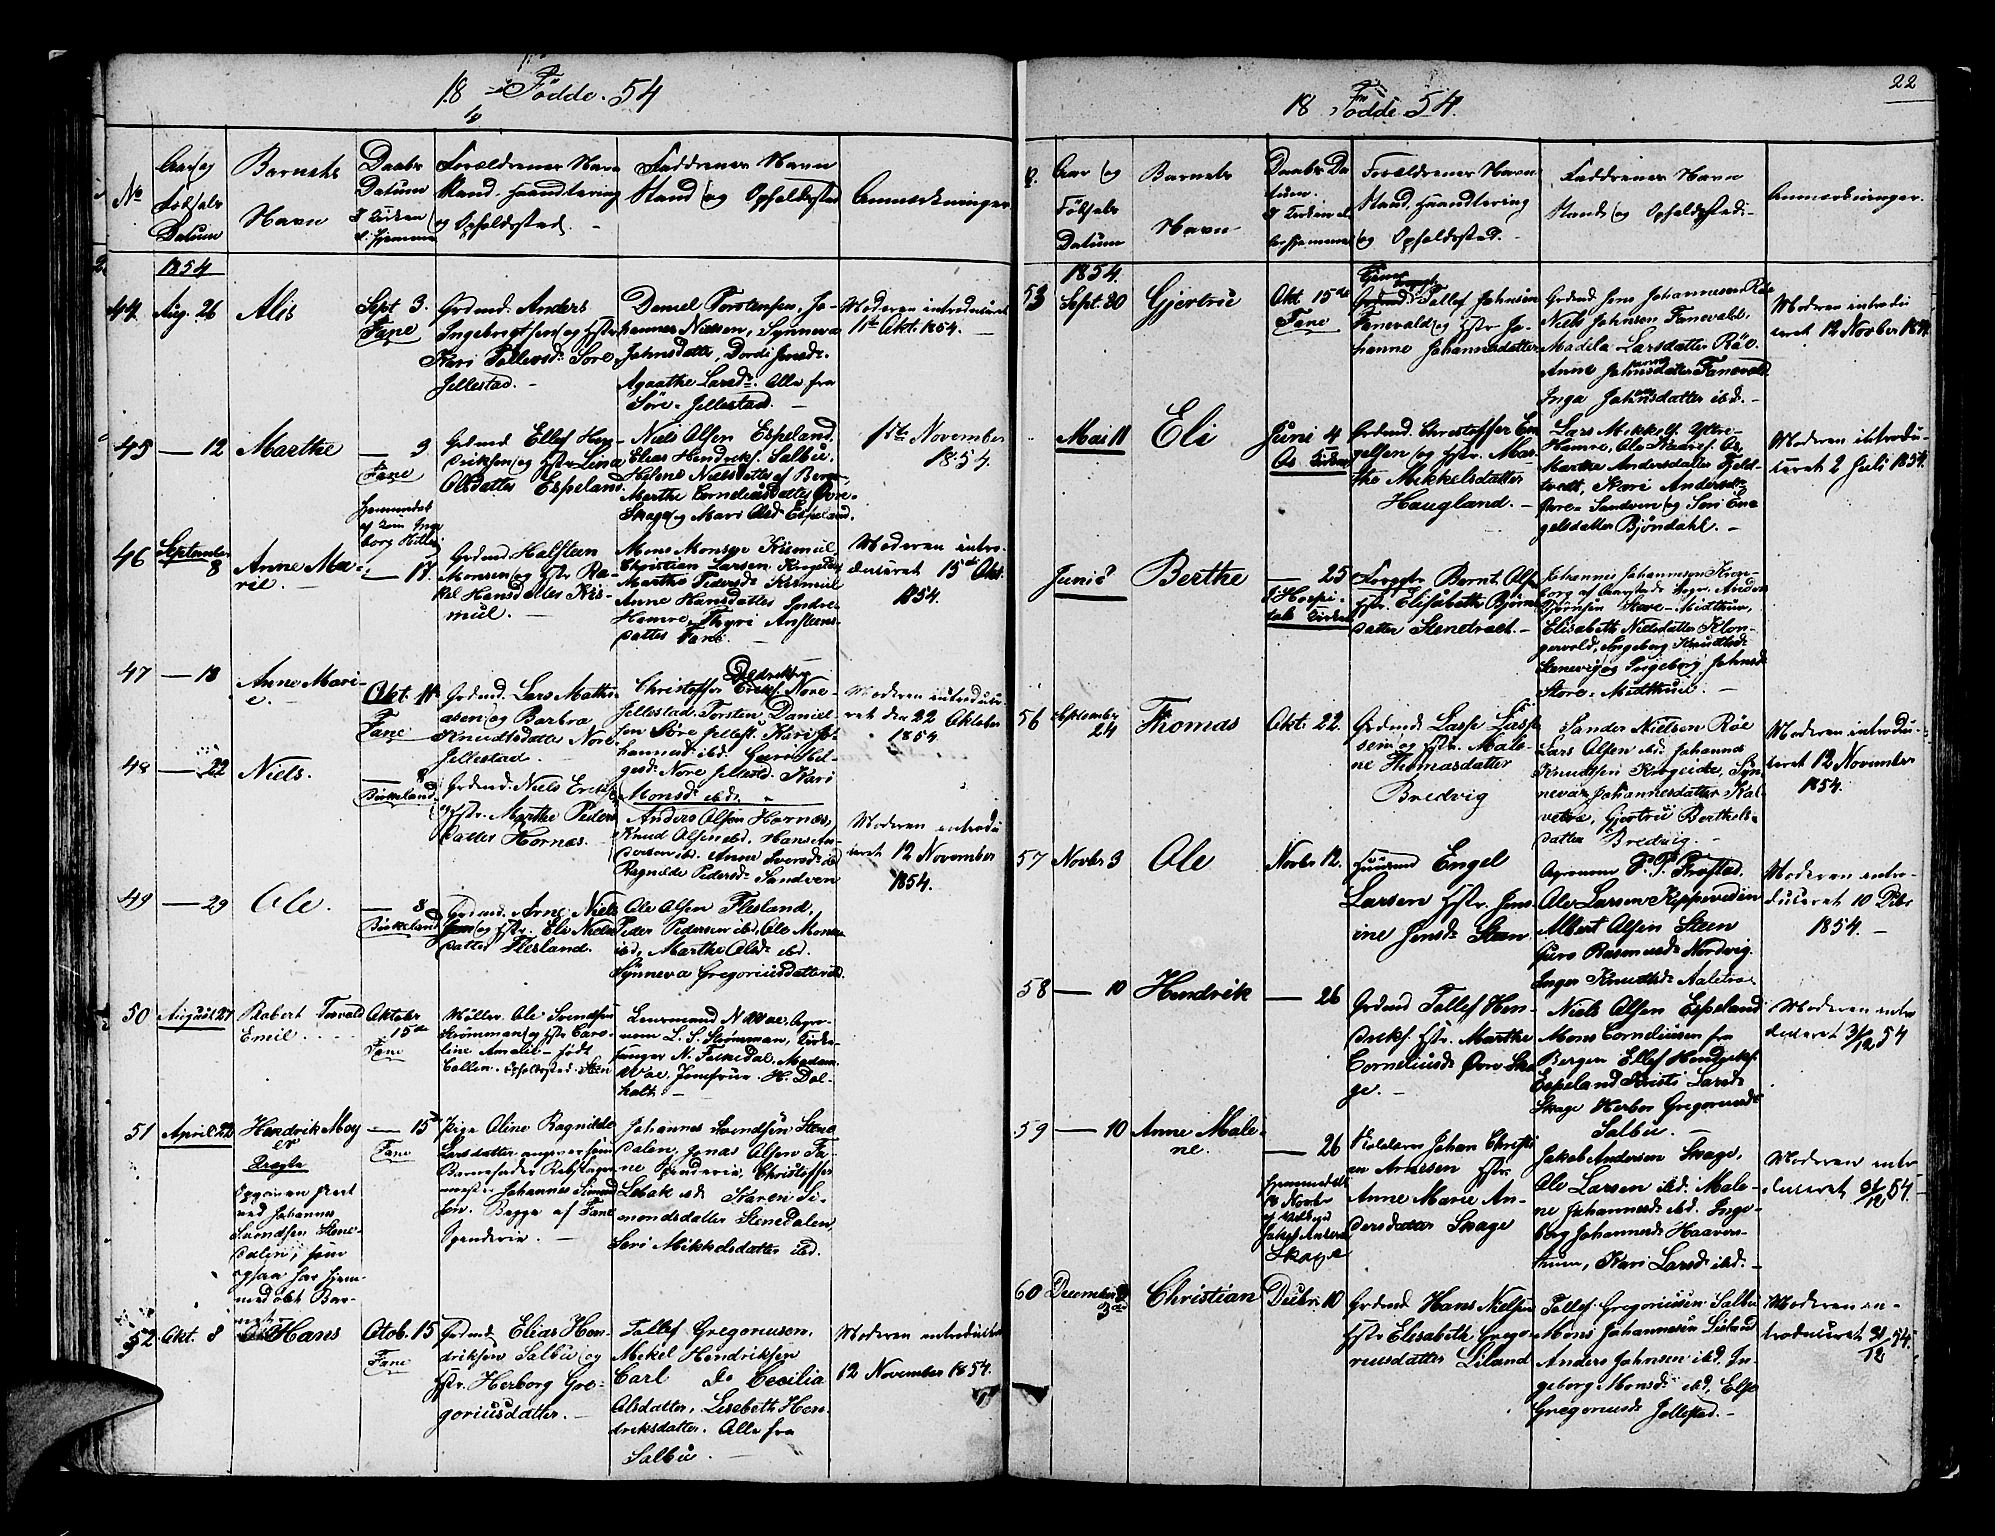 18 Fødde. 54
No
Aar og Fødsels Datum
Barnets Navn
Daabs Datum
Forældrenes Navn Stand, Haandtering og Opholdssted.
Faddrenes Navn Stand og Opholdssted
Anmærkninger
1854
44
Aug. 26
Alis
Sept 3.
Fane
Grdmd. Anders
Ingebrigtsen og Hstr
Kari Tollefsd. Søre
Jellestad.
Daniel Torstensen, Jo-
hannes Nielsen, Synneva
Johnsdatter, Dordi Jonsdr.
Agaathe Larsdr. Alle fra
Søre-Jellestad.
Moderen introduceret
1ste Okt. 1854.
45
— 12
Marthe
— 3
Fane
Grdmd Ellef Hen-
driksen og Hstr Lina
Olsdatter Espeland
Niels Olsen Espeland,
Elias Hendriks. Salbu.
Helene Nielsdatter af Bergen
Marthe Corneliusdatter Øvre-
Skage og Mari Olsd Espeland.
1ste November
1854.
46
September
8
Anne Ma-
rie.
Hjemmedøbt
— 17
Grdmd Halsteen
Monsen og Hstr Ra-
kel Hansdatter Kis-
mul.
Mons Monsen Kismul,
Christian Larsen
Marthe Pedersdr Kismul
Anne Hansdatter Indre-
Hamre, Thyri Ansteens-
datter Fane.
Moderen intro-
duceret 15de Okt.
1854.
47
— 18
Anne Mari-
e.
Okt. 1
Fane
Grdmd. Lars Mathi-
asen og Barbra
Knudtsdatter Nore
Jellestad.
Christoffer Nore-
Jellestad. Torsten Daniel-
sen Søre Jellest. Kari Jo-
hannesd: ibd. Guri Hel-
gesdr Nore Jellestd. Kari
Monsdr ibd.
Moderen introdu-
ceret den 22 Oktober
1854.
48
— 22
Niels.
— 8
Birkeland
Grdmd. Niels Eriks.
og Hstr. Marthe Peders-
datter Hornæs.
Anders Olsen Hornæs,
Knud Olsen ibd. Hans An-
dersen ibd. Anna Iversdr ibd
Ragnilde Pedersdr Sandven
Moderen introdu
ceret 12 November
1854.
49
— 29
Ole.
— 8
Birkeland
Grdmd. Arne Niels-
sen og Hstr. Eli Niels-
datter Flesland.
Ole Olsen Flesland,
Peder Pedersen ibd, Ole Mons-
ibd, Marthe Olsdr ibd.
Synneva Gregoriusdatter ibd.
50
August 27
Robert Torvald
Emil.
Oktober
15de
Fane
Møller. Ole Svendsen
Strømman og Hstr Caro-
line Amalie født
Collin. Opholdssted: Steen
Lensmand N. Wae, Agro-
nom L. S. Strømman, Kirke-
sanger N. Falkedal, Madam
Wae, Jomfrue H. Dol-
holt.
51
April 22
Hendrik Moy
er
Uægte
— 15de
Fane
Pige Oline Ragnilde
Larsdatter, angiver som
Barnefader Rebslager-
mester Johannes Simond-
sen. Begge af Fane
Johannes Svendsen Stena
dalen, Jonas Olsen Fa-
ne Spenderie, Christoffer
Lebak ibd Karen Si-
mondsdatter Stenedalen,
Seri Mikkelsdatter ibd.
52
Okt. 8
Hans
Otob. 15
Fane
Grdmd Elias Hen-
driksen Salbu og
Hstr. Herborg Gre-
goriusdatter.
Tollef Gregoriusen.
Mikel Hendriksen
Carl do Cecilia
Olsdatter, Lisebeth Hen-
driksdatter. Alle fra
Salbu
Moderen introduceret
12 November 1854.
22
18 Fødde 54.
Aar og
Fødsels
Datum
Barnets
Navn
Forældrenes Navn
Stand, Haandtering
og Opholdssted.
Faddrenes Navn
Stand og Opholdssted.
Anmærkninger.
1854.
53
Sept. 30
Gjertrie
Okt 15de
Fane
Grdmd. Tollef Johnsen
Fanevald og Hstr. Jo-
hanne Johannesdatter
Grdmd. Jens Johannesen Røe
Niels Johnsen Fanevald.
Madila Larsdatter Røe.
Anne Johnsdatter Fanevald
Inga Johnsdatter ibd.
Moderen introdu
ceret 12 Novber 1854.
Mai 11
Eli
Juni 4
Os Kirke
Grdmd. Christoffer En-
gelsen og Hstr. Mar-
the Mikkelsdatter
Haugland.
Lars Mikkels. Yttre-
Hamre,
Marthe Andersdatter
Kari Andersdr
Øvre-Sandven og Siri En-
gelsdatter Bjøndahl.
Moderen introdu-
ceret 2 Juli 1854.
Juni 8
Berthe
— 25
Hospi-
tals Kirken
Bernt Olsen
Hstr. Elisabeth Bjørns-
datter Stenetræet.
Elisabeth Nielsdatter
Store-Midthuen.
56
September
24
Thomas
Okt. 22.
Grdmd Lasse Lasse-
sen og Hstr. Male-
ne Thomasdatter
Bredvig
Sander Nielsen Røe
Lars Olsen ibd. Johannes
Knudtsen Krogeide, Syn-
neva Johannesdatter Kal-
vetræ, Gjertru Berthels-
datter Bredvig.
Moderen introdu-
ceret 12 November
1854.
57
Novbr 3
Ole
Novbr 12.
Huusmd Engel
Larsen Hstr. Jens-
ine Jensdr Steen
Agronom P. P. Frøstad.
Ole Larsen
Albert Olsen Steen
Guro Rasmusdr Nordvig.
Inger Knudtsdr
Moderen intro-
duceret 10 Debr
1854.
58
— 10
Hendrik
— 26
Grdmd Tollef Hen-
driks. Hstr. Marthe
Corneliusdr Øvre Ska-
ge.
Niels Olsen Espeland
Mons Corneliusen fra
Bergen Ellef Hendriks.
Espeland Kristi Larsdr
Skage Herbor Gregoriusdr
Salbu.
Moderen intro
duceret 31/12 54
59
— 10
Anne Male-
ne.
— 26
Hjemmedøbt
Skage
Johan Christi
an Arnesen Hstr.
Anne Marie An-
dersdatter Skage
Jakob Andersen Skage,
Ole Larsen ibd. Male-
ne Johannesdr ibd. Inge-
borg Johannesdr Haavers-
tuen, Kari Larsdr ibd.
Moderen intro
duceret 31/12 54.
60
December
3die
Christian
Decbr. 10
Grdmd Hans Nielsen
Hstr Elisabeth Grego-
riusdatter Liland
Tollef Gregoriusen Salbu
Mons Johannesen Liland
Anders Johnsen ibd. In-
geborg Monsdr ibd, Else
Gregoriusdr Jellestad.
Moderen in-
troduceret 31/12 54.